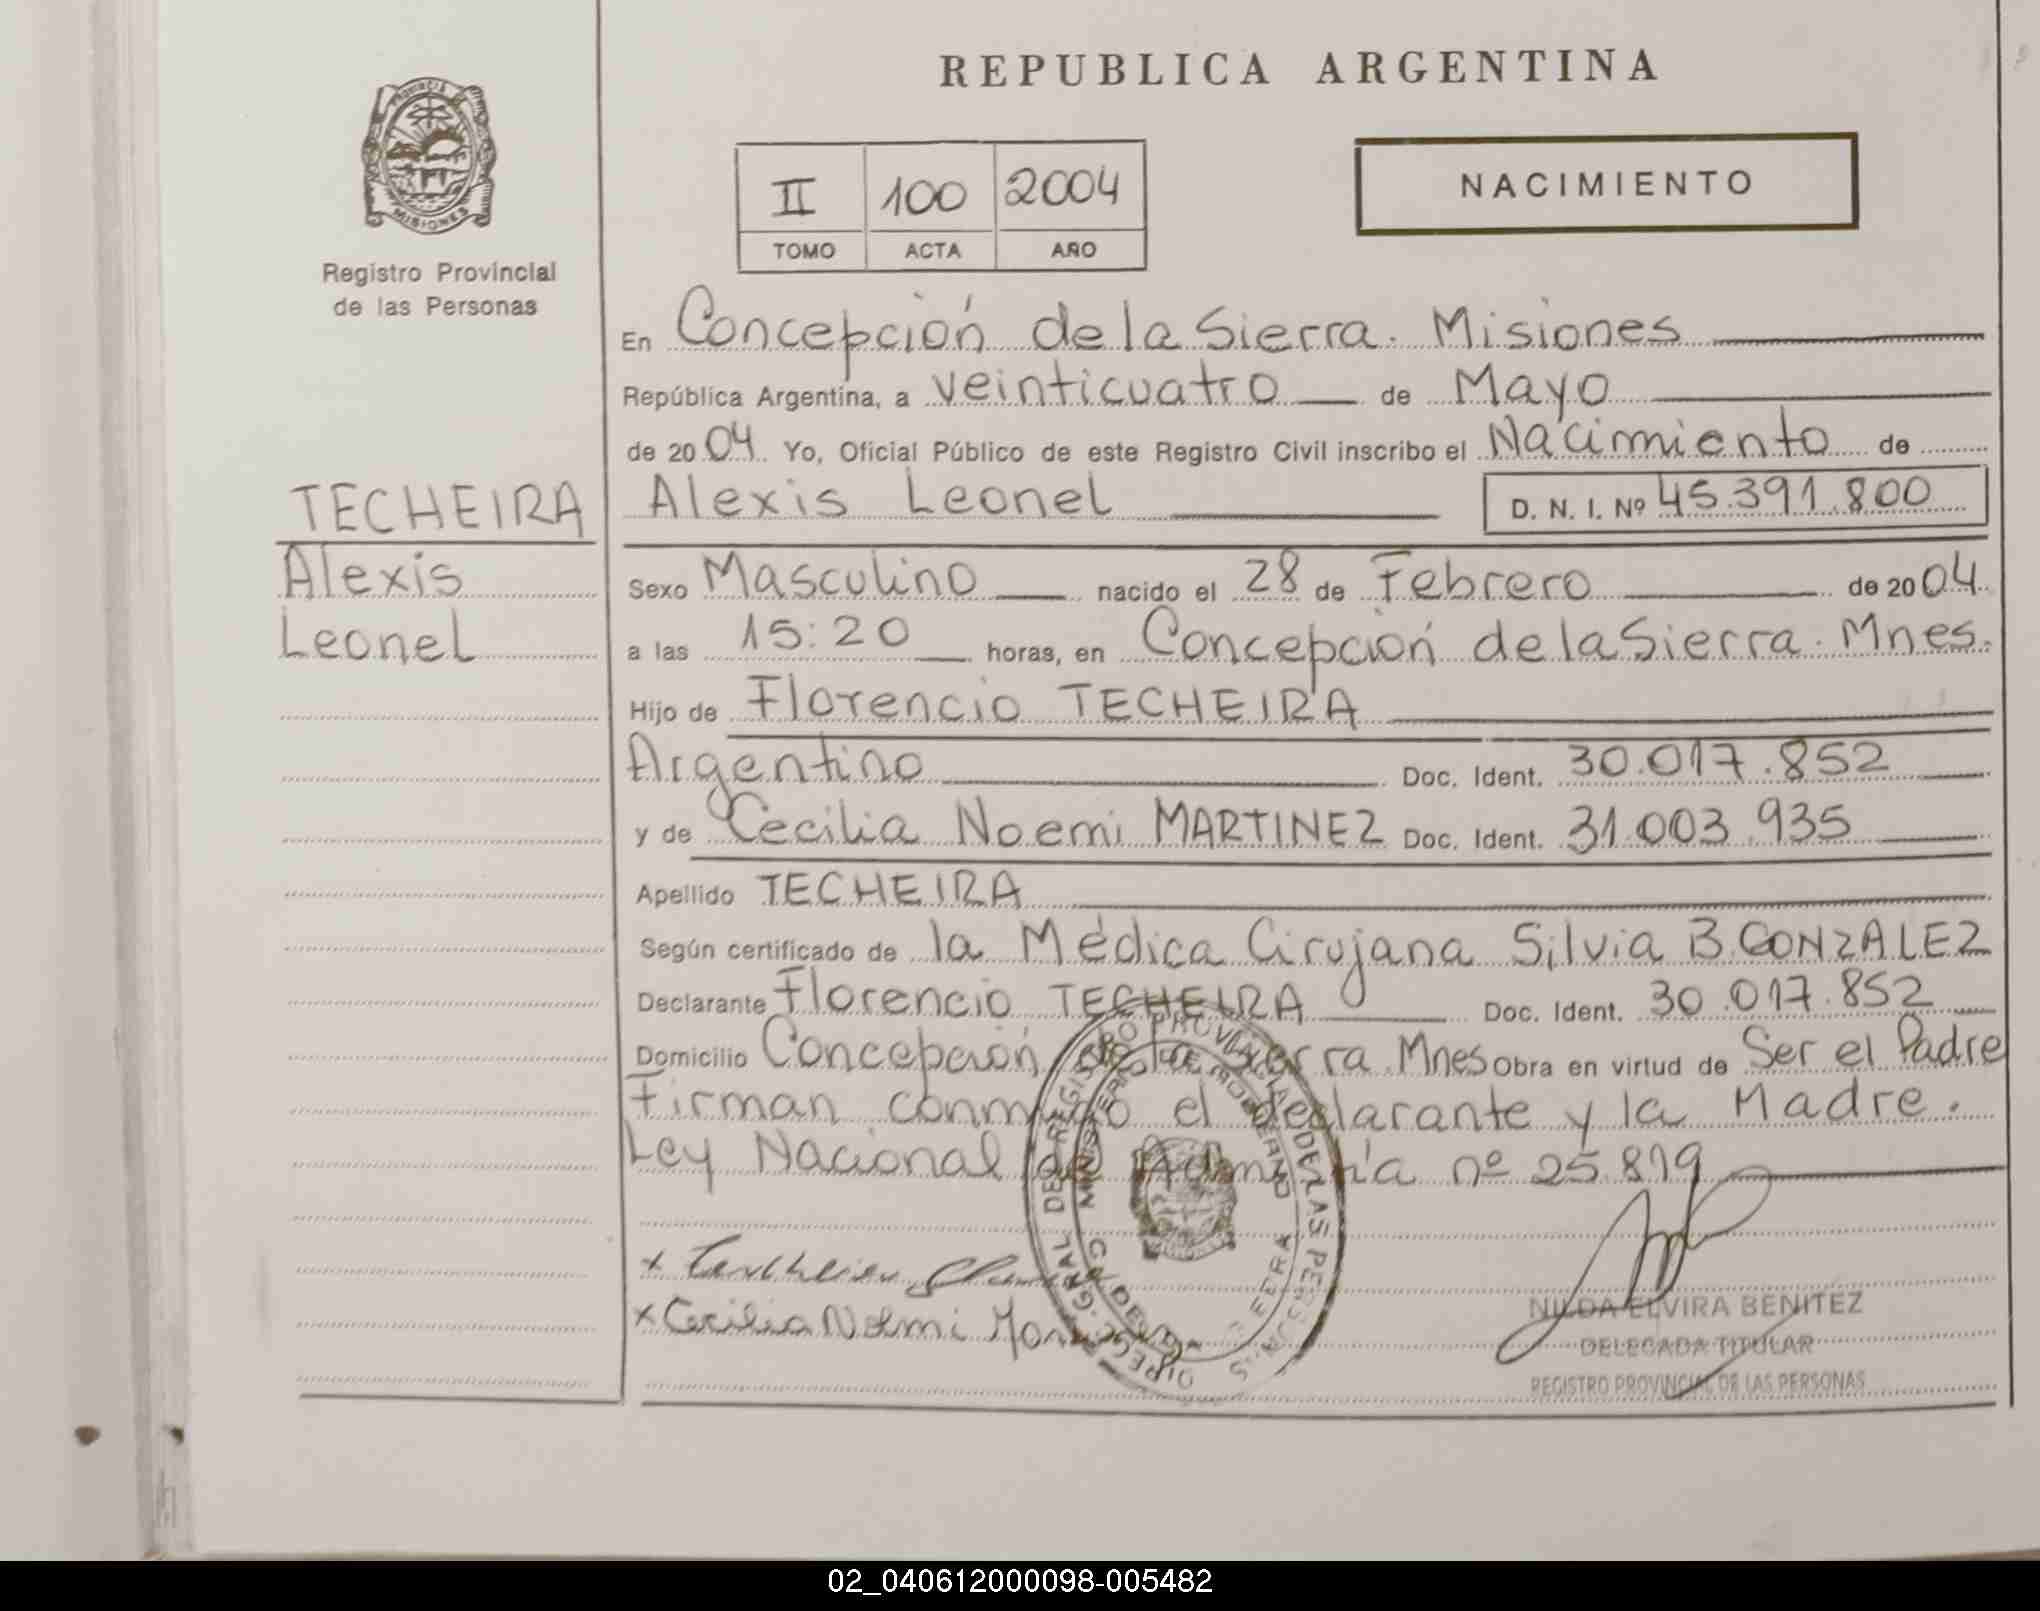 REPUBLICA ARGENTINA
PROVINCIA
MISIONES
Registro Provincial
de las Personas
II 100 2004
TOMO ACTA AÑO
NACIMIENTO
En Concepción de la Sierra. Misiones
República Argentina, a veinticuatro de Mayo
de 2004 Yo, Oficial Público de este Registro Civil inscribo el Nacimiento de
TECHEIRA
Alexis
Leonel
Alexis Leonel D. N. I. Nº 45.391.800
Sexo Masculino nacido el 28 de Febrero de 2004
a las 15:20 horas, en Concepción de la Sierra. Mnes.
Hijo de Florencio TECHEIRA
Argentino Doc. Ident. 30.017.852
y de Cecilia Noemi MARTINEZ Doc. Ident. 31.003.935
Apellido TECHEIRA
Según certificado de la Médica Cirujana Silvia B. GONZALEZ
Declarante Florencio TECHEIRA Doc. Ident. 30.017.852
Domicilio Concepción de la Sierra Mnes Obra en virtud de Ser el Padre
Firman conmigo el declarante y la Madre.
Ley Nacional de Amnistía nº 25.819
x Techeira
x Cecilia Noemi
NILDA ELVIRA BENITEZ
DELEGADA TITULAR
REGISTRO PROVINCIAL DE LAS PERSONAS
02_040612000098-005482